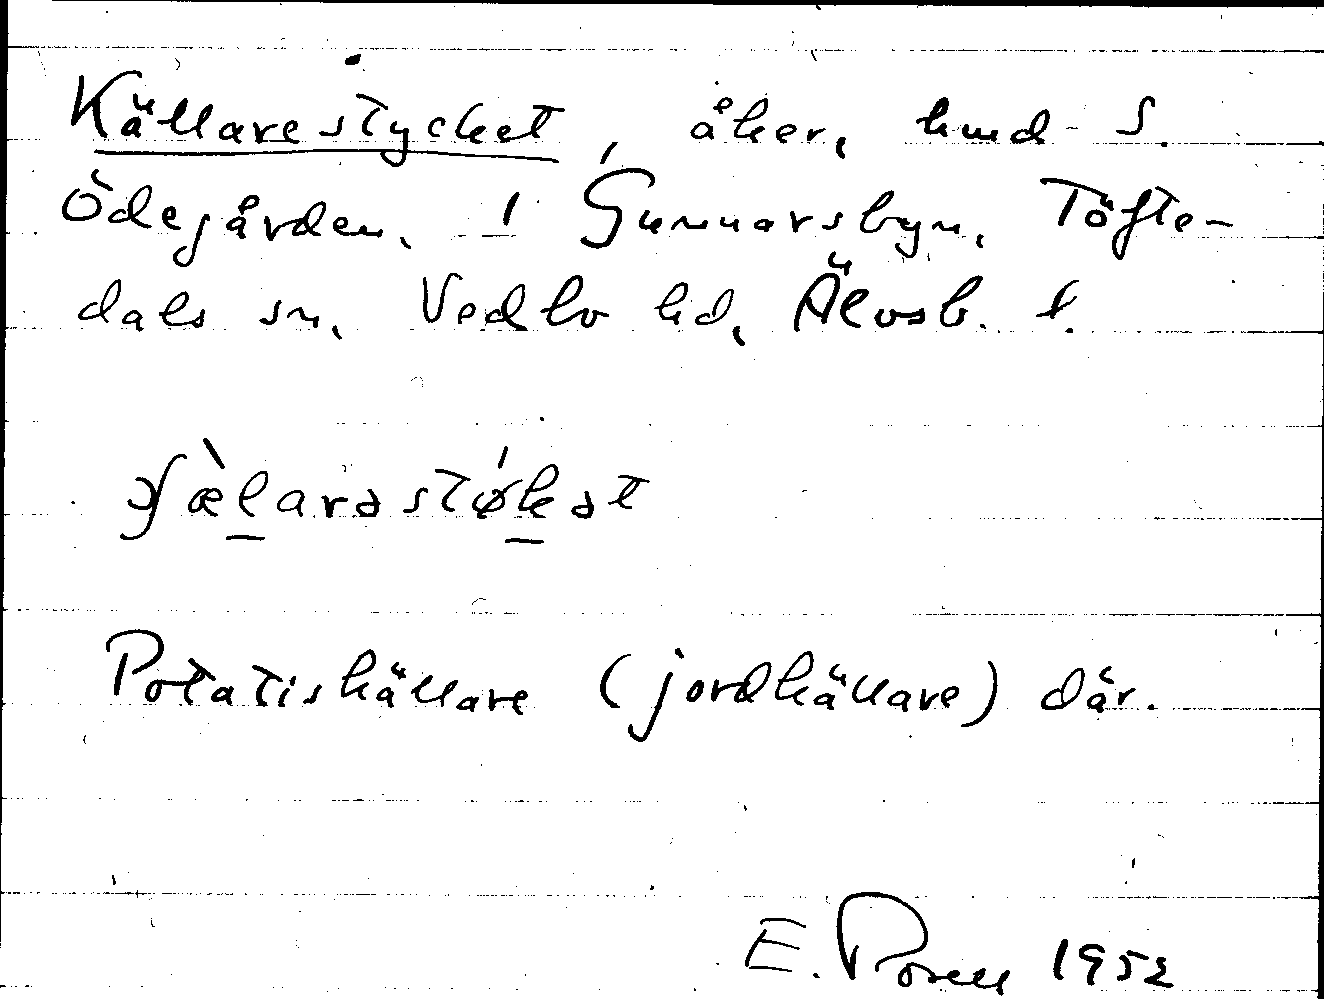 Källarestycket, åker, hmd S.
Ödegården. 1 Gunnarsbyn, Töfte-
dals sn, Vedbo hd, Älvsb. l.
Potatiskällare (jordkällare) där.
E. 1952